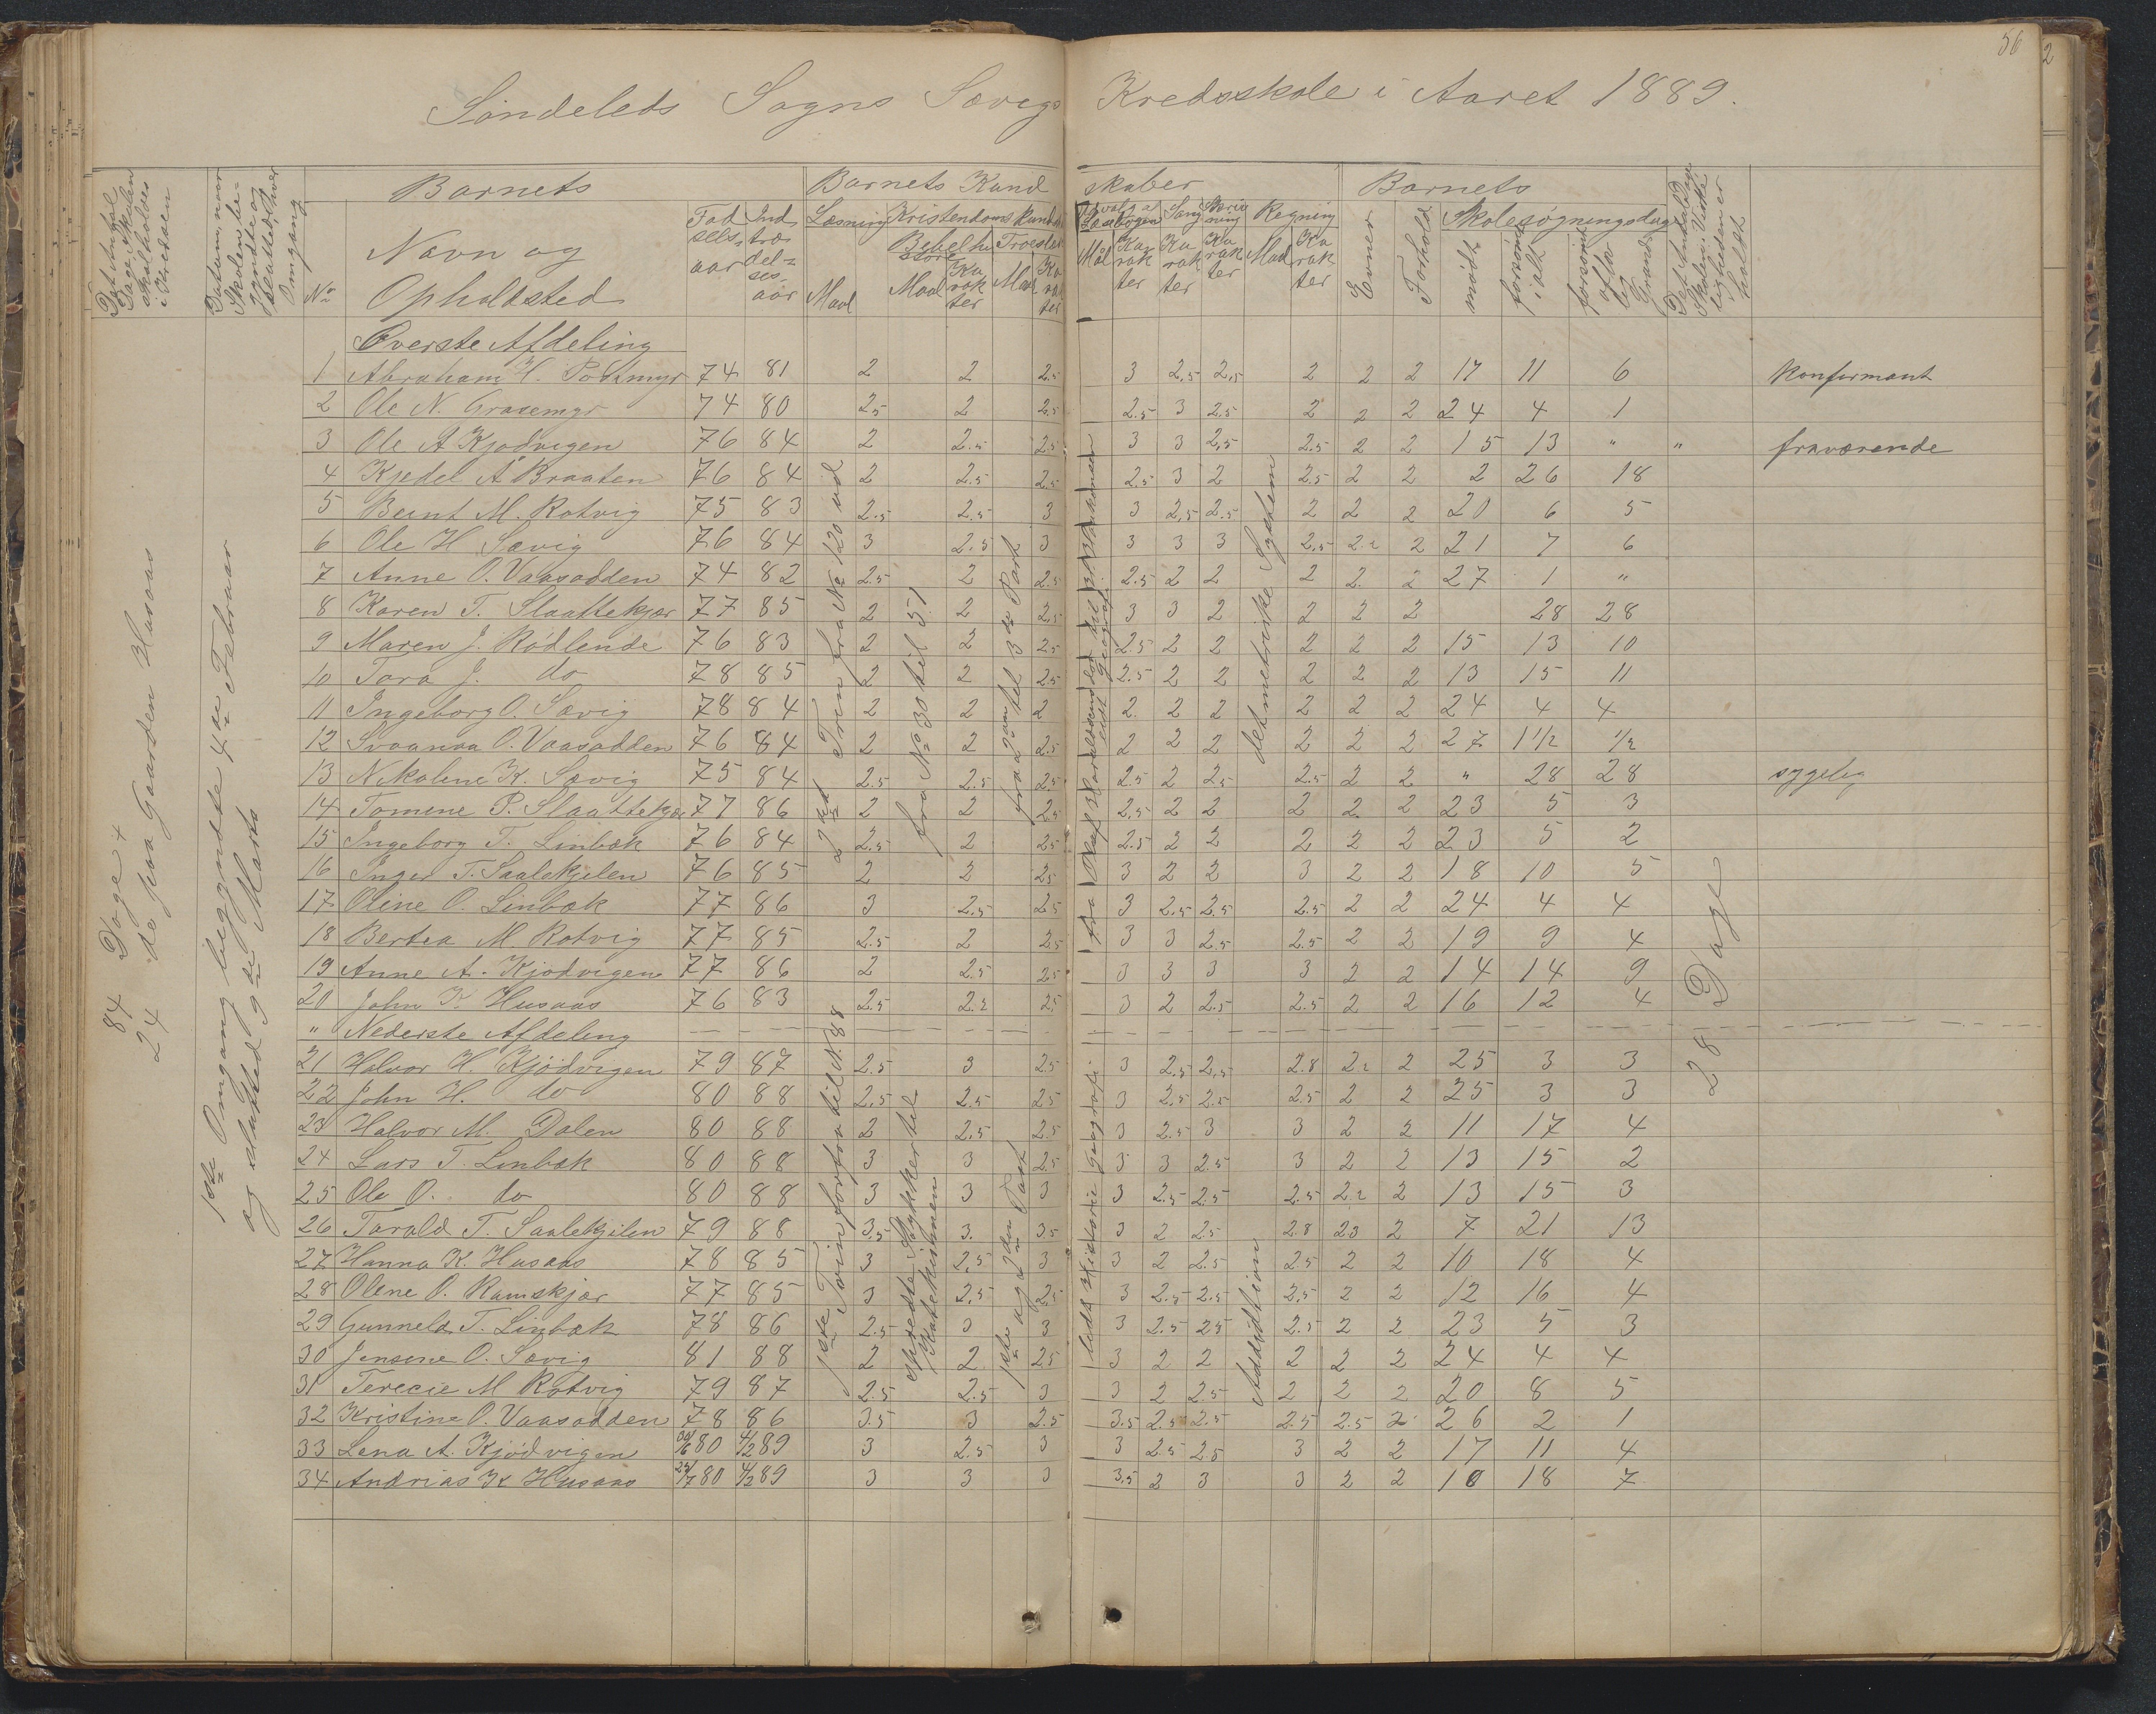 56
2
Söndeleds Sogns Sævigs Kredsskole i Aaret 1889.
Det Antal Dage Skolen skal holdes i Kredsen
Datum, naar Skolen begyndte og sluttede hver Omgang
No
Barnets
Navn og
Opholdsted
Födselsaar
Indtrædelsesaar
Barnets Kundskaber
Læsning
Maal
Kristendomskundskab
Bibelhistorie
Maal
Karakter
Troeslære
Maal
Karakter
Udvalg af Læsebogen
Mål
Karakter
Sang
Karakter
Skrivning
Karakter
Regning
Maal
Karakter
Barnets
Evner
Forhold
Skolesøgningsdage
mødt
forsømt i alt
forsømt af lovlig Grund
Det Antal Dage Skolen i Virkeligheden er holdt
84 Dage +
24 do paa Gaarden Husaas
1ste Omgang begyndte 4de Februar
og slutted 9de Marts
Överste Afdeling
1 Abraham H. Postmyr 74 81 2 2 2.5 3 2,5 2,5 2 2 2 17 11 6 Konfirmant
2 Ole N. Grasemyr 74 80 2.5 2 2.5 2.5 3 2,5 2 2 2 24 4 1
3 Ole A Kjødvigen 76 84 2 2.5 2.5 3 3 2,5 2.5 2 2 15 13 " " fraværende
4 Kjedel A Braaten 76 84 2 2.5 2.5 2.5 3 2 2.5 2 2 2 26 18
5 Bernt M. Rotvig 75 83 2.5 2.5 3 3 2,5 2.5 2 2 2 20 6 5
6 Ole H Sævig 76 84 3 2.5 3 3 3 3 2,5 2.2 2 21 7 6
7 Anne O. Vaasodden 74 82 2.5 2 2.5 2.5 2 2 2 2. 2 27 1 "
8 Karen T. Slaattekjær 77 85 2 2 2,5 3 3 2 2 2 2 28 28
9 Maren J. Rødlende 76 83 2 2 2.5 2.5 2 2 2 2 2 15 13 10
10 Tora J. do 78 85 2 2 2.5 2.5 2 2 2 2 2 13 15 11
11 Ingeborg O. Sævig 78 84 2 2 2 2. 2 2 2 2 2 24 4 4
12 Svaanaa O. Vaasodden 76 84 2 2 2.5 2 2 2 2 2 2 27 1 1/2 1/2
13 Nikoline K. Sævig 75 84 2.5 2.5 2.5 2.5 2 2.5 2.5 2 2 " 28 28 sygelig
14 Tomine P. Slaattekjær 77 86 2 2 2.5 2,5 2 2 2 2. 2 23 5 3
15 Ingeborg T. Linbæk 76 84 2.5 2 2.5 2.5 2 2 2 2 2 23 5 2
16 Inger T. Saalekjelen 76 85 2 2 2.5 3 2 2 3 2 2 18 10 5
17 Oline O. Linbæk 77 86 3 2.5 2.5 3 2.5 2.5 2.5 2 2 24 4 4
18 Bertea M. Rotvig 77 85 2.5 2 2.5 3 3 2.5 2.5 2 2 19 9 4
19 Anne A. Kjødvigen 77 86 2 2.5 2.5 3 3 3 3 2 2 14 14 9
20 John K. Husaas 76 83 2.5 2.2 2.5 3 2 2.5 2.5 2 2 16 12 4
" Nederste Afdeling
21 Halvor H. Kjödvigen 79 87 2.5 3 2.5 3 2.5 2,5 2.8 2.2 2 25 3 3
22 John H. do 80 88 2,5 2.5 2.5 3 2,5 2.5 2.5 2 2 25 3 3
23 Halvor M. Dalen 80 88 2 2,5 2.5 3 2.5 3 3 2 2 11 17 4
24 Lars T. Linbæk 80 88 3 3 2.5 3 3 2.5 3 2 2 13 15 2
25 Ole O. do 80 88 3 3 3 3 2.5 2.5 2.5 2.2 2 13 15 3
26 Tarald T. Saalekjilen 79 88 3,5 3. 3.5 3 2 2.5 2.8 2.3 2 7 21 13
27 Hanna K. Husaas 78 85 3 2,5 3 3 2 2.5 2.5 2 2 10 18 4
28 Olene O. Ramskjær 77 85 3 2,5 2,5 3 2.5 2.5 2,5 2 2 12 16 4
29 Gunneld T. Linbæk 78 86 2.5 3 3 3 2.5 2.5 2.5 2 2 23 5 3
30 Jensine O. Sævig 81 88 2 2 2.5 3 2 2 2 2 2 24 4 4
31 Terecie M Rotvig 79 87 2.5 2.5 3 3 2 2.5 2 2 2 20 8 5
32 Kristine O. Vaasodden 78 86 3.5 3 2.5 3.5 2.5 2.5 2.5 2.5 2 26 2 1
33 Lena A. Kjødvigen 30/6 80 4/2 89 3 2.5 3 3 2.5 2.5 3 2 2 17 11 4
34 Andrias K Husaas 80 4/2 89 3 3 3 3,5 2 3 3 2 2 10 18 7
2det Trin fra No 120 ud
fra No 30 til 51
fra 2den til 3die Part
fra Olaf Haraldssønner til
samt Geografi
det metriske System
28 Dage
1ste Trin forfra til N. 88
skrevte Stykker til
Katekismen
1ste og 2den Part
lidt Historie Geografi
Addition